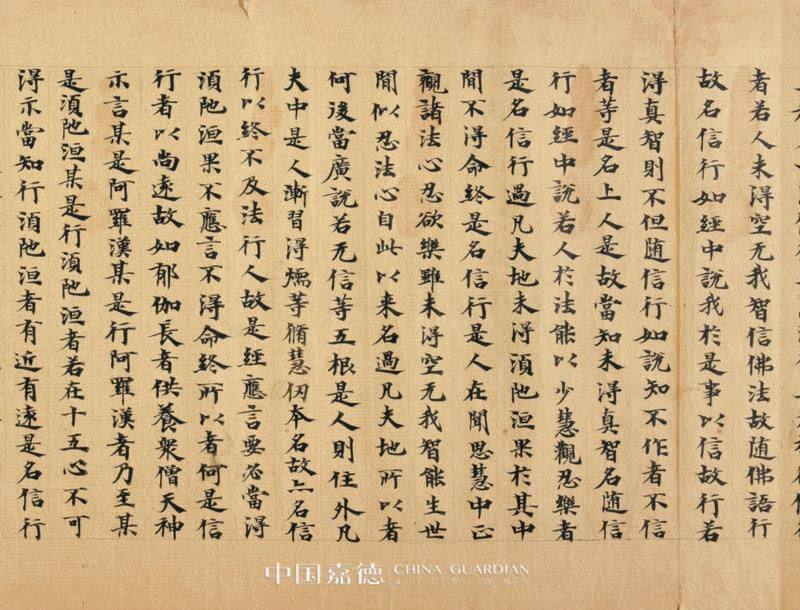 者若人未得空无我智信佛法故随佛語行
故名信行如經中說我於是事以信故行若
得真智則不但随信行如說知不作者不信
者等是名上人是故當知未得真智名随信
行如經中說若人於法能以少慧觀忍樂者
是名信行過凡夫地未得湏陁洹果於其中
閒不得命終是名信行是人在聞思慧中正
觀諸法心忍欲樂雖未得空无我智能生世
閒似忍法心自此以来名過凡夫地所以者
何後當廣說若无信等五根是人則住外凡
夫中是人漸習得煗等脩慧仍本名故亦名信
行以終不及法行人故是經應言要必當得
湏陁洹果不應言不得命終所以者何是信
行者以尚遠故如郁伽長者供養衆僧天神
示言某是阿羅漢某是行阿羅漢者乃至某
是湏陁洹某是行湏陁洹者若在十五心不可
得示當知行湏陁洹者有近有遠是名信行
中国嘉德 CHINA GUARDIAN
AUCTIONS